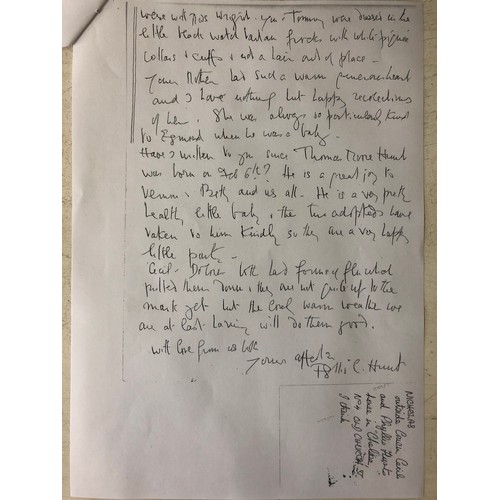 were with Miss Wright. You & Tommy were dressed in the
little black watch tartan frocks with white piqué
collars & cuffs & not a hair out of place -
Your Mother had such a warm generous heart
and I have nothing but happy recollections
of her. She was always so particularly kind
to Egmond when he was a baby -
Have I written to you since Thomas Hunt
was born on Feb 6th? He is a great joy to
and us all. He is a very pretty
health little baby & the two adopteds have
taken to him kindly so they are a very happy
little party -
Cecil & both had forms of flu which
pulled them down & they are not quite up to the
mark yet but the warm weather we
are at last having will do them good.
with love from us both
Yours affec
Hunt
NICHOLAS
outside Cousin Cecil
and Phyllis Hunt's
house in Chelsea,
No 4 OLD CHURCH ST
I think